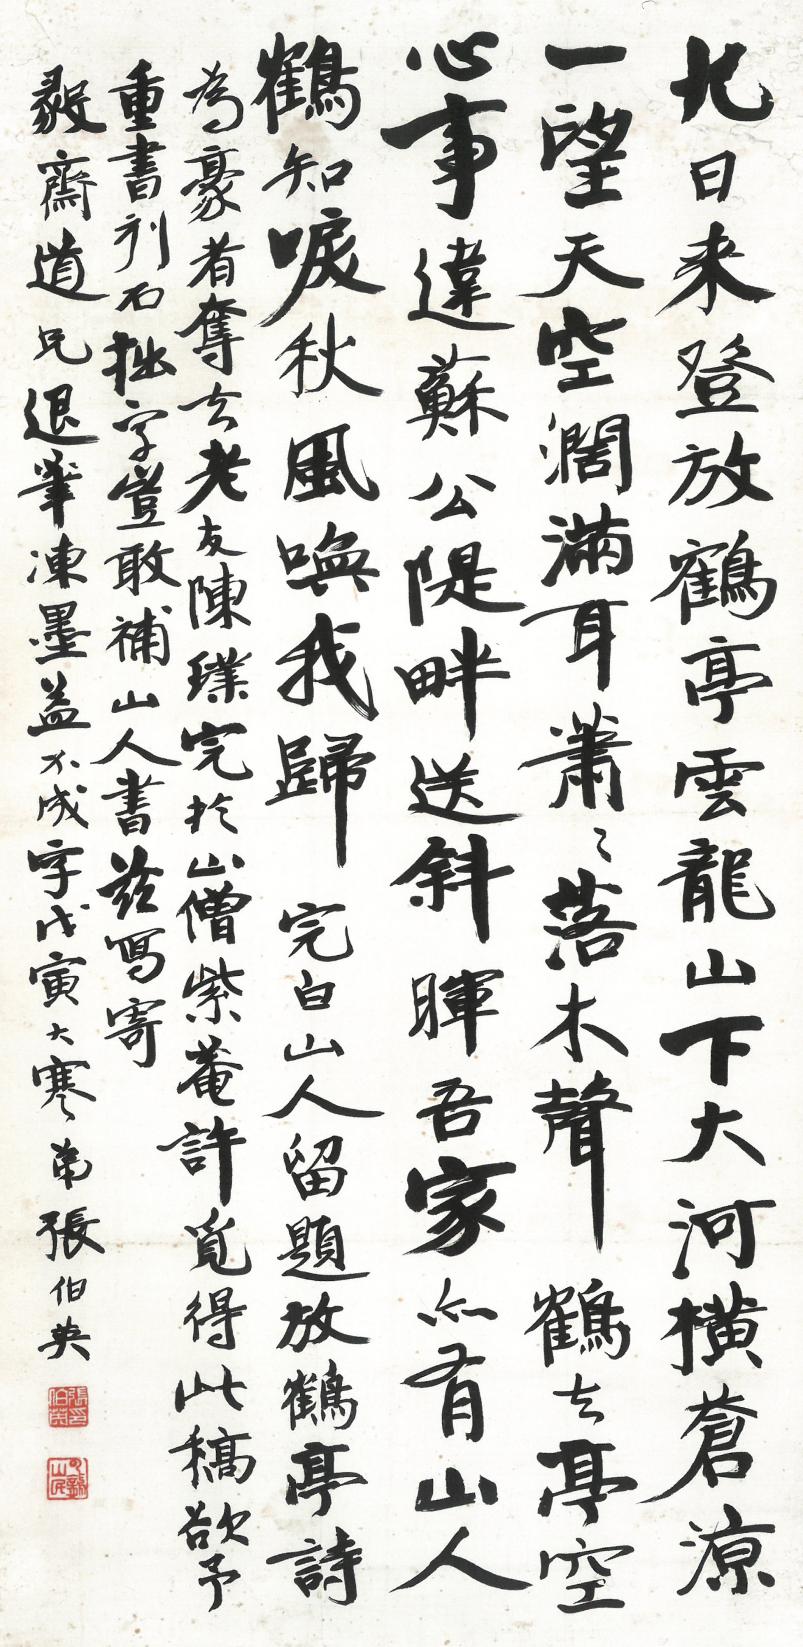 北日来登放鶴亭雲龍山下大河橫蒼涼
一望天空濶滿耳蕭〻落木聲鶴去亭空
心事違蘇公隄畔送斜暉吾家亦有山人
鶴知唳秋風喚我歸完白山人留題放鶴亭詩
為豪者奪去老友陳璞完於山僧紫菴許覓得此稿欲予
重書刊石拙字豈敢補山人書茲寫寄
毅齋道兄退筆凍墨益不成字戊寅大寒弟張伯英
張伯英印